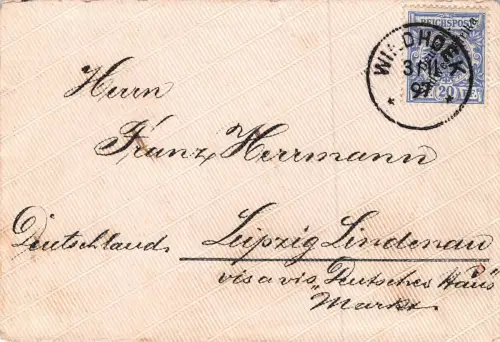 REICHSPOST
WINDHOEK
97
20
Herrn
Franz Herrmann
Deutschland. Leipzig Lindenau
vis a vis „Deutsches Haus“
Markt.